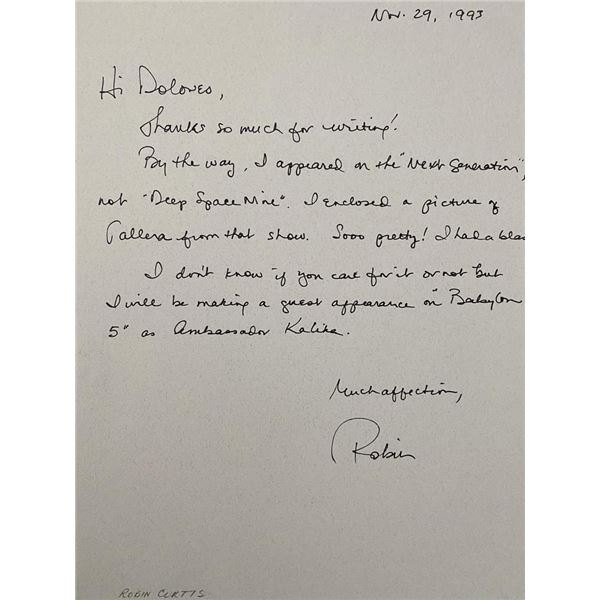 Nov. 29, 1993
Hi Dolores,
Thanks so much for writing!
By the way, I appeared on the "Next Generation",
not "Deep Space Nine". I enclosed a picture of
Tallera from that show. Sooo pretty! I had a blas
I don't know if you care for it or not but
I will be making a guest appearance on "Babylon
5" as Ambassador Kalika.
Much affection,
Robin
ROBIN CURTIS